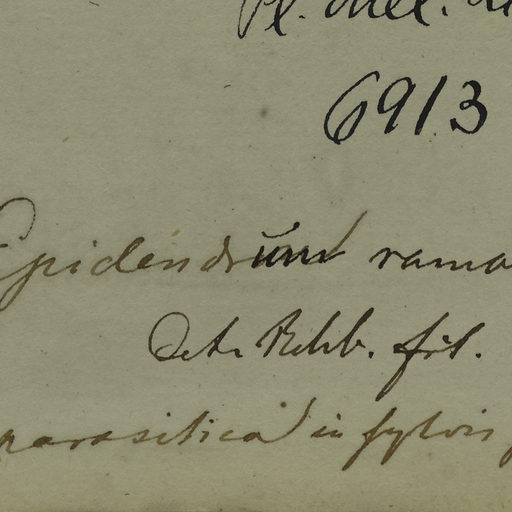 Pl. Mex.
6913
Epidendrum ramo
Det. Rchb. fil.
parasitica in sylvis